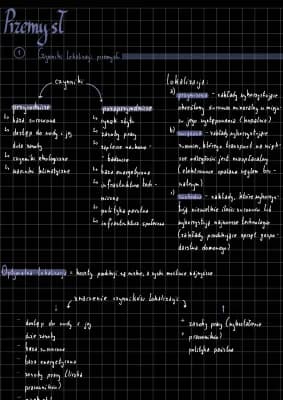 Przemysł
① Czynniki lokalizacji przemysłu
czynniki
przyrodnicze
↳ baza surowcowa
↳ dostęp do wody i jej
duże zasoby
↳ czynniki ekologiczne
↳ warunki klimatyczne
pozaprzyrodnicze
↳ rynek zbytu
↳ zasoby pracy
↳ zaplecze naukowo-
badawcze
↳ baza energetyczna
↳ infrastruktura tech-
niczna
↳ polityka państwa
↳ infrastruktura społeczna
Lokalizacja:
a) - zakłady wykorzystujące
określony surowiec mineralny w miejs-
cu jego występowania (kopalnie)
b) - zakłady wykorzystujące
surowiec, którego transport na więk-
sze odległości jest nieopłacalny
(elektrownie opalane węglem bru-
natnym)
c) - zakłady, które wykorzys-
tują niewielkie ilości surowców lub
wykorzystują najnowsze technologie
(zakłady produkujące sprzęt gospo-
darstwa domowego)
Optymalna lokalizacja = koszty produkcji są niskie, a zyski możliwie najwyższe
znaczenie czynników lokalizacji
↓
- dostęp do wody i jej
duże zasoby
- baza surowcowa
- baza energetyczna
- zasoby pracy (liczba
pracowników)
↑
+ zasoby pracy (wykształcenie
pracowników)
polityka państwa